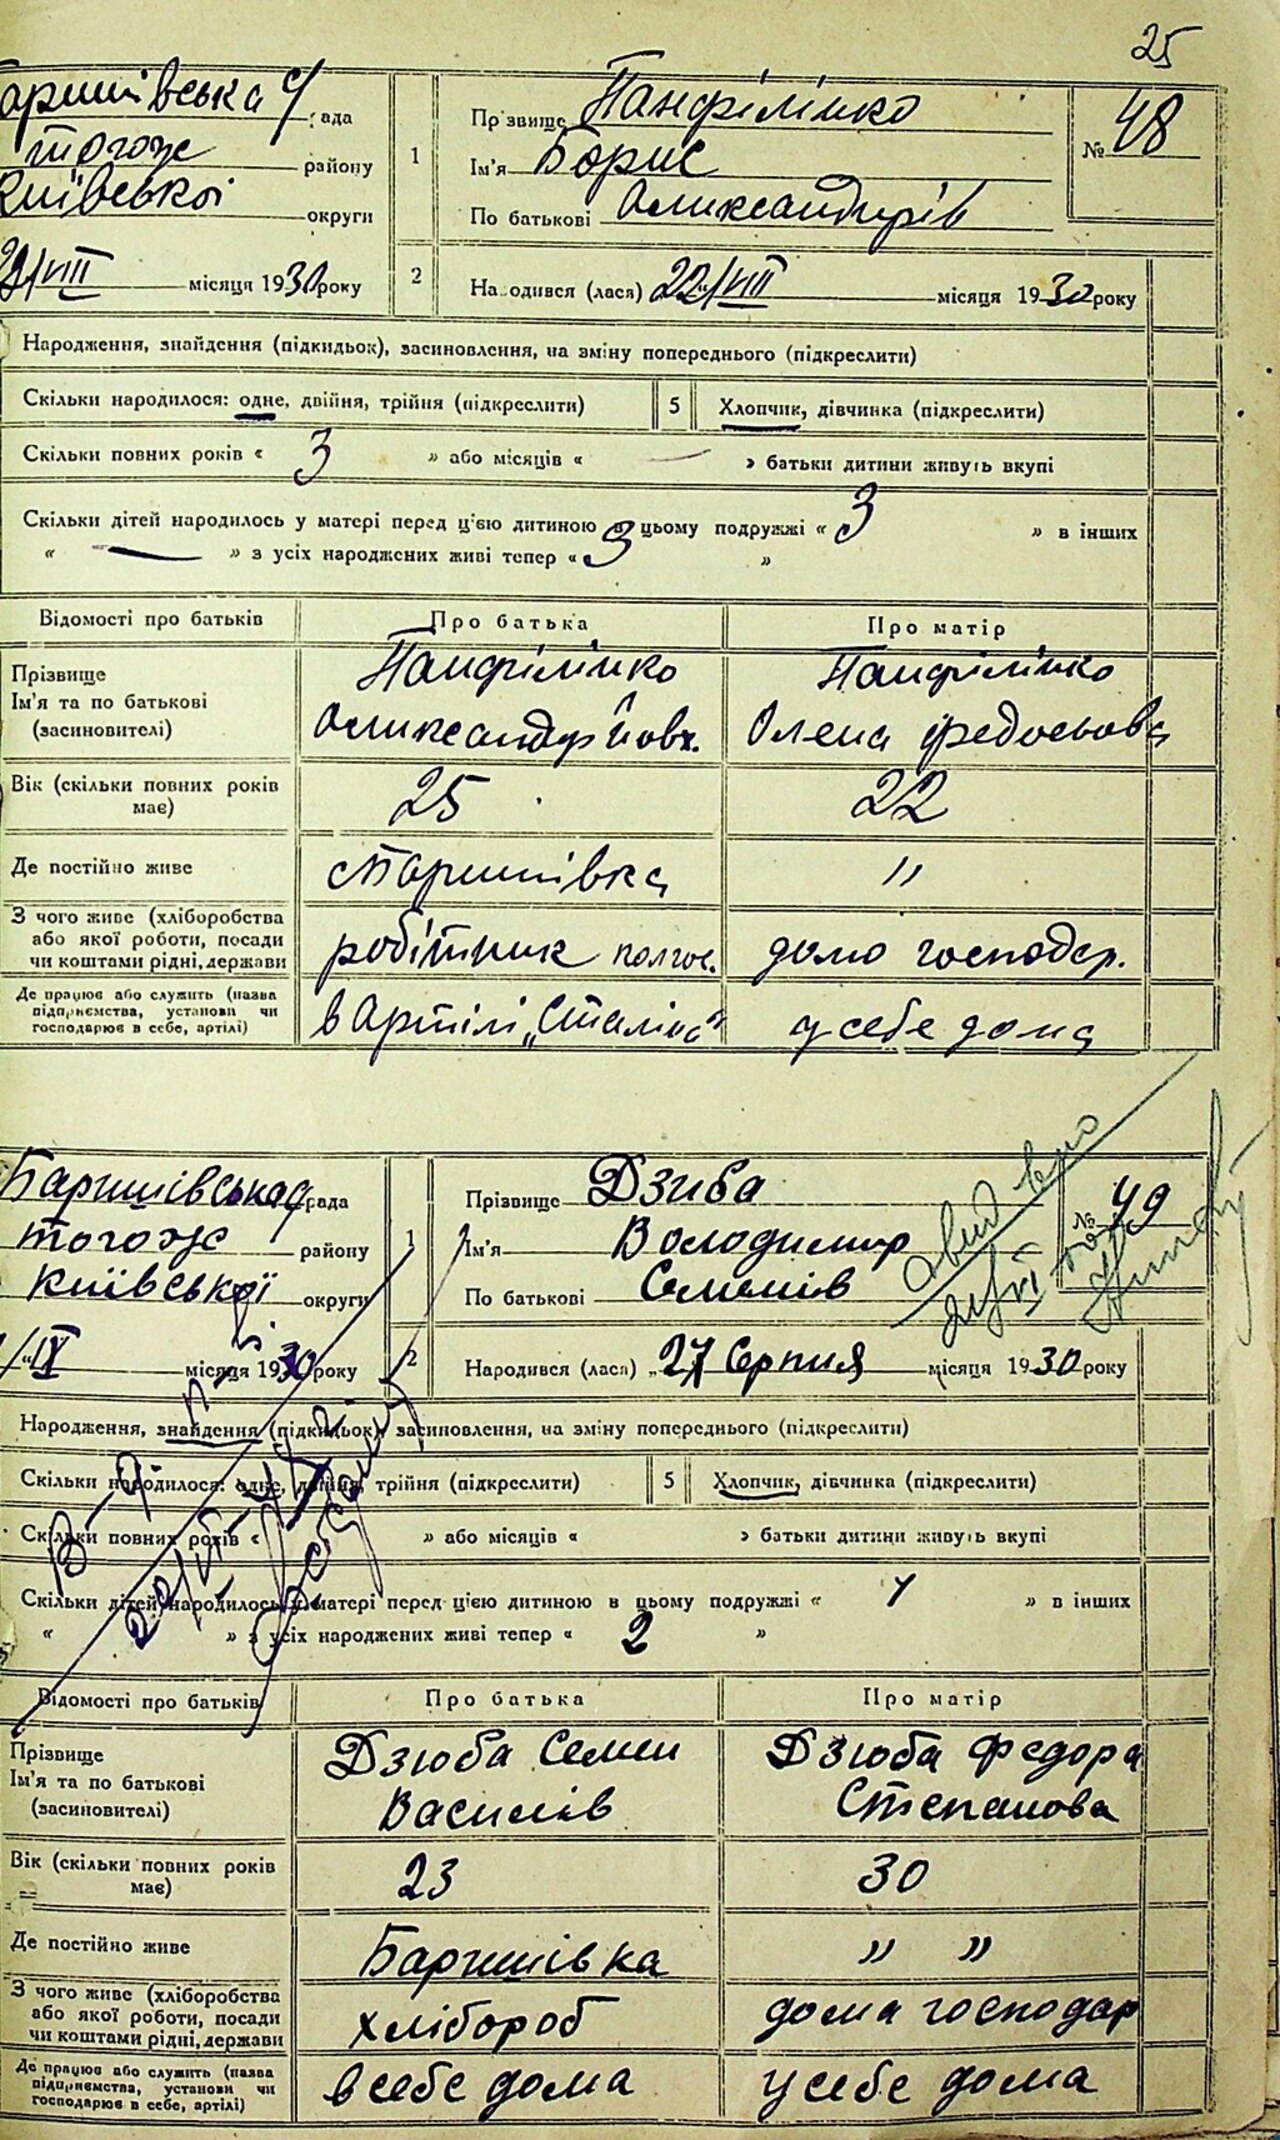 25
аришівська с/рада
тогож району
Київської округи
1
Прізвище Панфілінко
Ім'я Борис
По батькові Олиександрів
№ 48
/VIII місяця 1930 року
2
На одився (лася) 22/VIII місяця 1930 року
Народження, знайдення (підкидьок), засиновлення, на зміну попереднього (підкреслити)
Скільки народилося: одне, двійня, трійня (підкреслити)
5
Хлопчик, дівчинка (підкреслити)
Скільки повних років « 3 » або місяців « — » батьки дитини живуть вкупі
Скільки дітей народилось у матері перед ц'єю дитиною в цьому подружжі « 3 » в інших
« — » з усіх народжених живі тепер « 3 »
Відомості про батьків
Про батька
Про матір
Прізвище
Ім'я та по батькові
(засиновителі)
Панфілінко
Олиександр
Панфілінко
Олена Федосьова
Вік (скільки повних років
має)
25
22
Де постійно живе
Баришівка
"
З чого живе (хліборобства
або якої роботи, посади
чи коштами рідні, держави
робітник
домо господар.
Де працює або служить (назва
підприємства, установи чи
господарює в себе, артілі)
в Артілі „Сталіна"
у себе дома
Баришівська с/рада
тогож району
Київської округи
1
Прізвище Дзюба
Ім'я Володимир
По батькові Семенів
№ 49
/IX місяця 1930 року
2
Народився (лася) „27 Серпня місяця 1930 року
Народження, знайдення (підкидьок), засиновлення, на зміну попереднього (підкреслити)
Скільки народилося: одне, двійня, трійня (підкреслити)
5
Хлопчик, дівчинка (підкреслити)
Скільки повних років « » або місяців « » батьки дитини живуть вкупі
Скільки дітей народилось у матері перед ц'єю дитиною в цьому подружжі « 1 » в інших
« » з усіх народжених живі тепер « 2 »
Відомості про батьків
Про батька
Про матір
Прізвище
Ім'я та по батькові
(засиновителі)
Дзюба Семен
Василів
Дзюба Федора
Степанова
Вік (скільки повних років
має)
23
30
Де постійно живе
Баришівка
" "
З чого живе (хліборобства
або якої роботи, посади
чи коштами рідні, держави
хлібороб
дома господар
Де працює або служить (назва
підприємства, установи чи
господарює в себе, артілі)
в себе дома
у себе дома